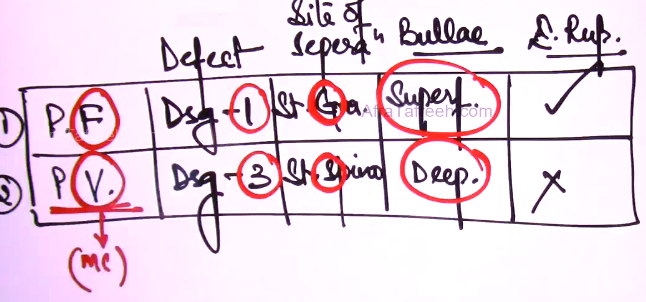 Defect Site of Seperaⁿ Bullae E. Rup.
① P.F Dsg-1 St. Gra. Superf.
② P V. Dsg-3 St. Spino Deep.
(MC)
AfraTafreeh.com